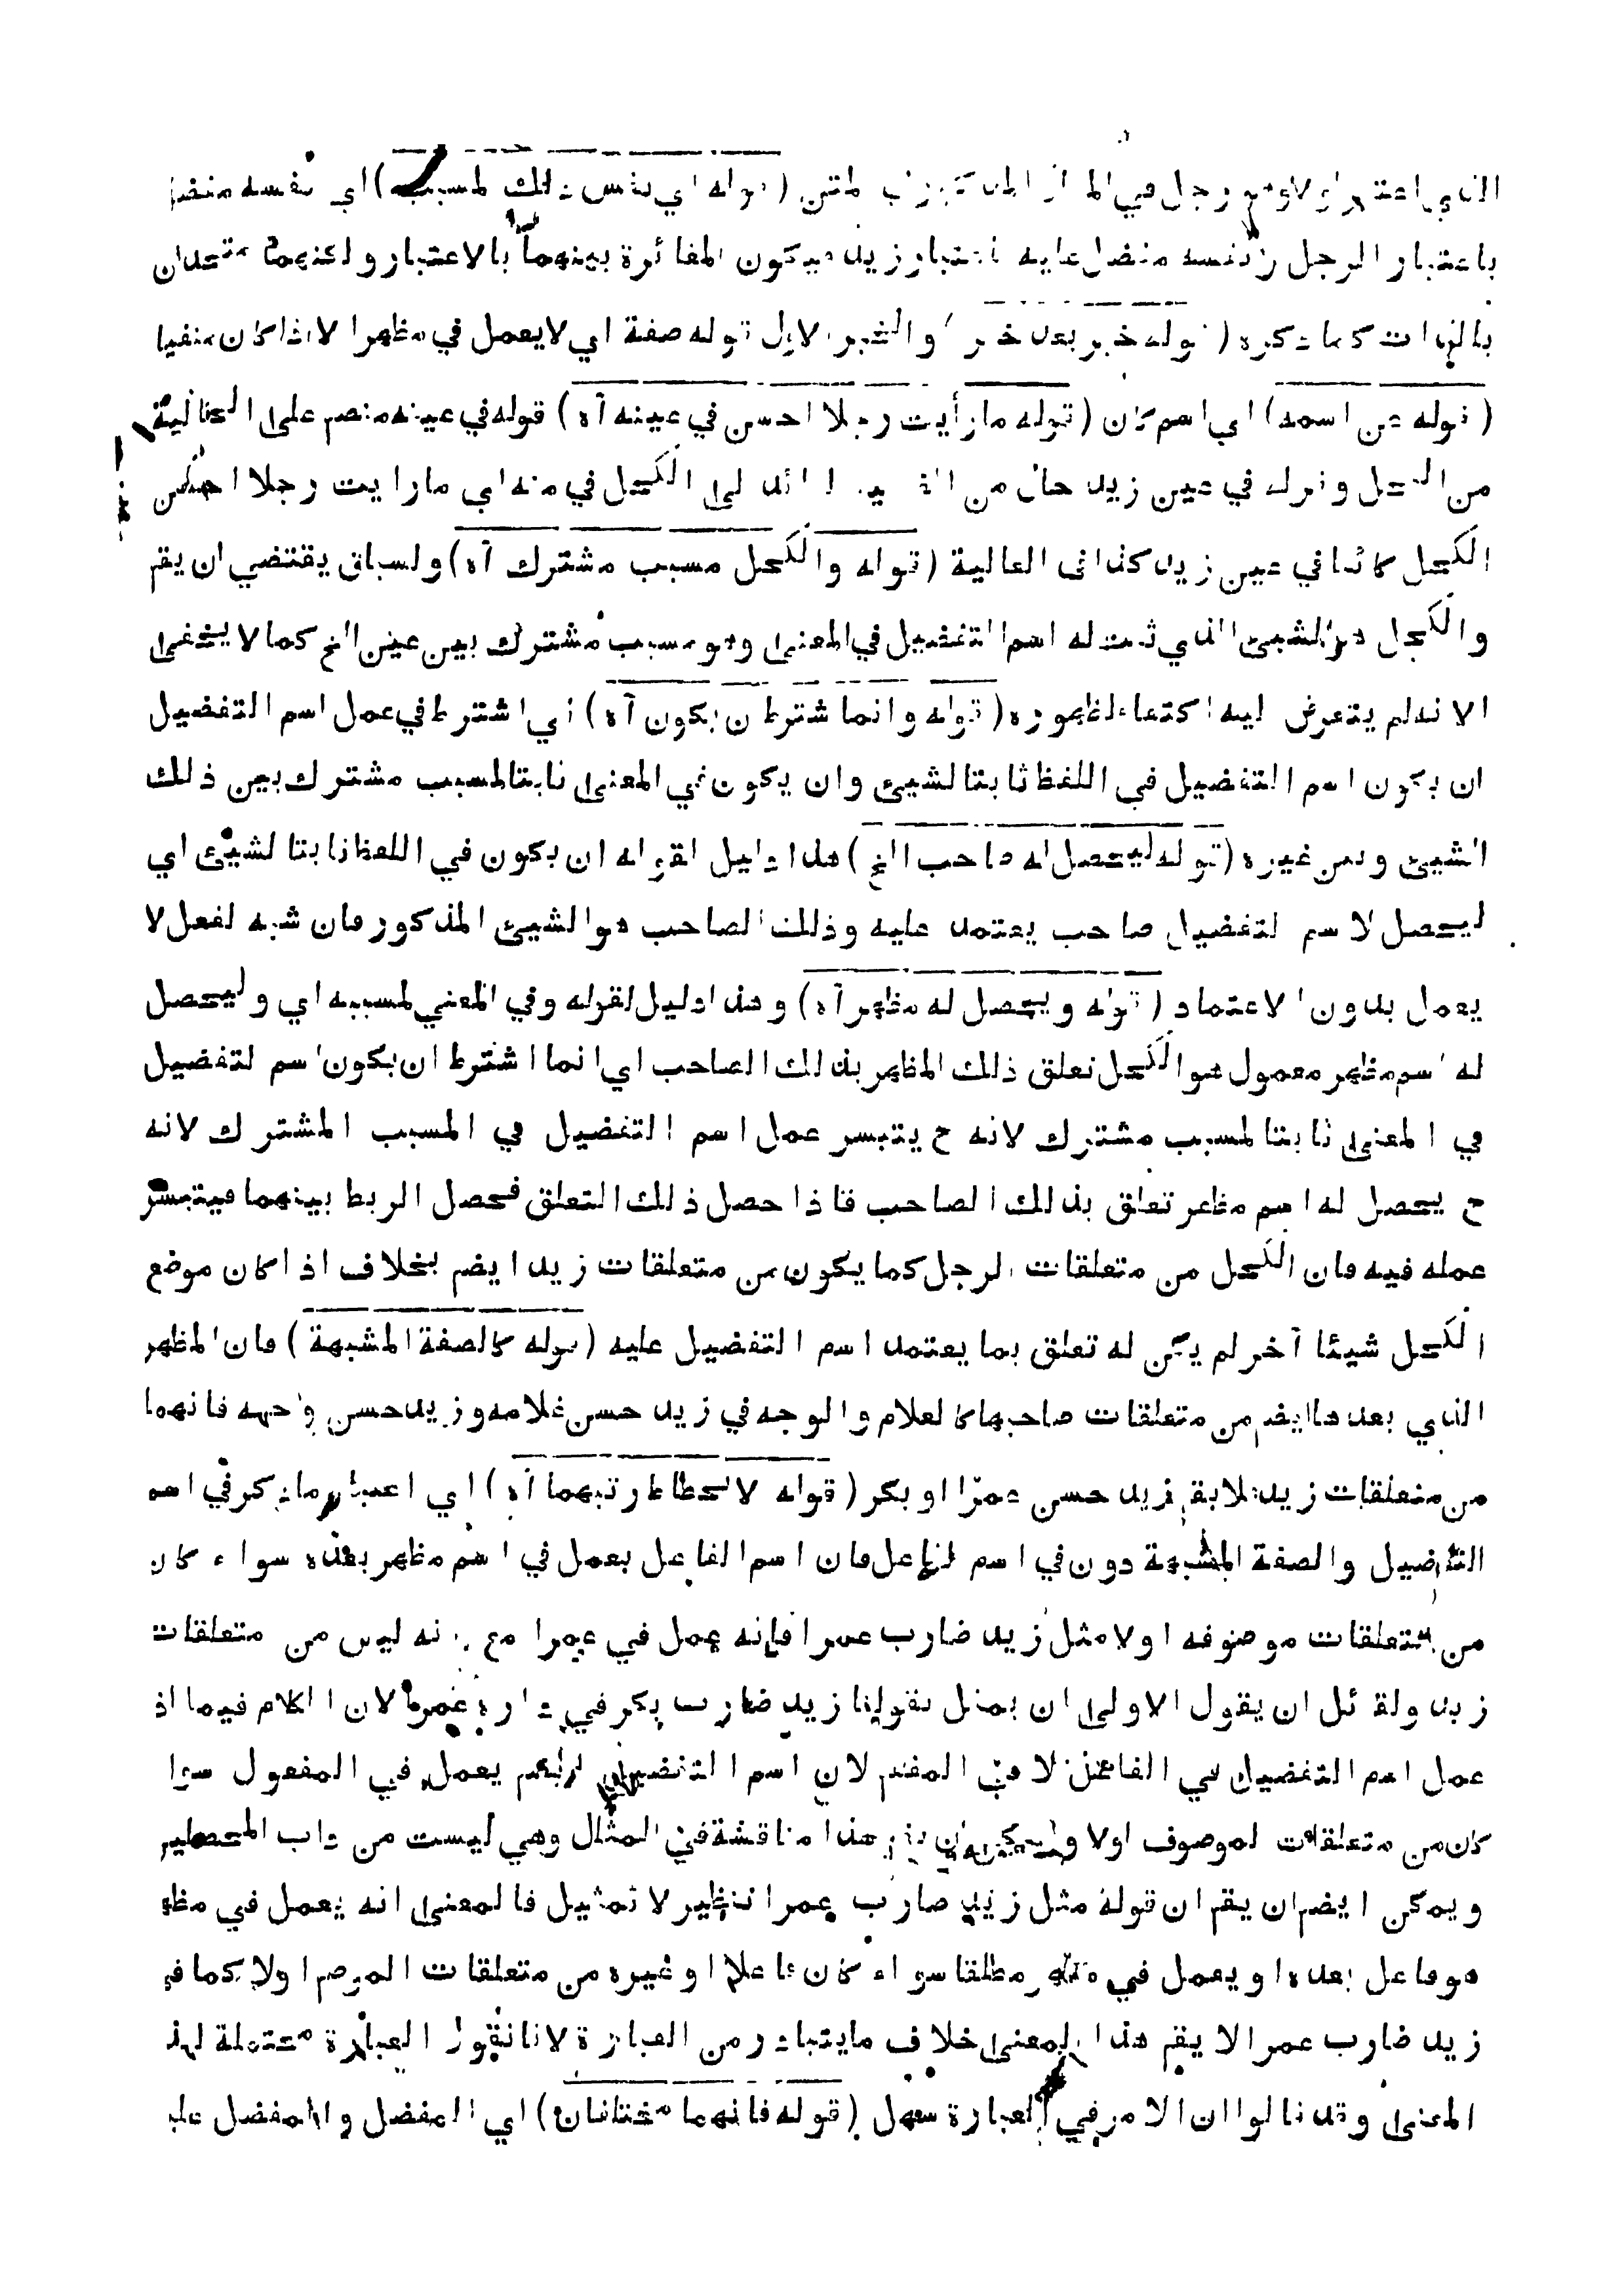 الذي اعتبر اولا وهو رجل في المتن (قوله اي نفس ذلك المسبب) اي نفسه مفضل
باعتبار الرجل ونفسه مفضل عليه باعتبار زيد فيكون المغائرة بينهما بالاعتبار ولكنهما متحدان
بالذات كما ذكره (قوله خبر بعد خبر) والخبر الاول قوله صفة اي لا يعمل في مظهر الا اذا كان منفيا
(قوله عن اسمه) اي اسم كان (قوله ما رأيت رجلا احسن في عينه آه) قوله في عينه منصم على الحالية
من الكحل وقوله في عين زيد حال من الضمير في منه اي ما رايت رجلا احسن
الكحل كائنا في عين زيد كذا في العالية (قوله والكحل مسبب مشترك آه) ولسباق يقتضي ان يقم
والكحل هو الشيئ الذي ثبت له اسم التفضيل في المعنى وهو مسبب مشترك بين عين الخ كما لا يخفى
الا انه لم يتعرض اليه اكتفاء لظهوره (قوله وانما شترط ن يكون آه) اي اشترط في عمل اسم التفضيل
ان يكون اسم التفضيل في اللفظ ثابتا لشيئ وان يكون في المعنى ثابتا لمسبب مشترك بين ذلك
الشيئ وبين غيره (قوله ليحصل له صاحب الخ) هذا دليل لقوله ان يكون في اللفظ ثابتا لشيئ اي
ليحصل لاسم لتفضيل صاحب يعتمد عليه وذلك الصاحب هو الشيئ المذكور فان شبه لفعل لا
يعمل بدون الاعتماد (قوله ويحصل له مظهر آه) وهذا دليل لقوله وفي المعني لمسببه اي وليحصل
له اسم مظهر معمول هو الكحل تعلق ذلك المظهر بذلك الصاحب اي انما اشترط ان يكون اسم لتفضيل
في المعنى ثابتا لمسبب مشترك لانه ح يتيسر عمل اسم التفضيل في المسبب المشترك لانه
ح يحصل له اسم مظهر تعلق بذلك الصاحب فاذا حصل ذلك التعلق فحصل الربط بينهما فيتيسر
عمله فيه فان الكحل من متعلقات الرجل كما يكون من متعلقات زيد ايضم بخلاف اذا كان موضع
الكحل شيئا آخر لم يكن له تعلق بما يعتمد اسم التفضيل عليه (قوله كالصفة المشبهة) فان المظهر
الذي بعدها ايضم من متعلقات صاحبها كالغلام والوجه في زيد حسن غلامه وزيد حسن وجهه فانهما
من متعلقات زيد فلا يقم زيد حسن عمرا او بكر (قوله لانحطاط رتبهما آه) اي اعتبار ما ذكر في اسم
التفضيل والصفة المشبهة دون في اسم لفاعل فان اسم الفاعل يعمل في اسم مظهر بعده سواء كان
من متعلقات موصوفه اولا مثل زيد ضارب عمرا فانه عمل في عمرا مع انه ليس من متعلقات
زيد ولقائل ان يقول الاولى ان يمثل بقولنا زيد ضارب بكر في داره عمرا لان الكلام فيما اذ
عمل اسم التفضيل في الفاعل لا في المفعم لان اسم التفضيل لم يعمل في المفعول سوا
كان من متعلقات لموصوف اولا ويمكن ان هذا مناقشة في المثال وهي ليست من داب المحصلين
ويمكن ايضم ان يقم ان قوله مثل زيد ضارب عمرا تنظير لا تمثيل فالمعنى انه يعمل في مظهر
هو فاعل بعده او يعمل في مظهر مطلقا سواء كان فاعلا او غيره من متعلقات الموصم اولا كما في
زيد ضارب عمرا لا يقم هذا المعنى خلاف ما يتبادر من العبارة لانا نقول العبارة محتملة لهذا
المعنى وقد قالوا ان الامر في العبارة سهل (قوله فانهما مختلفان) اي المفضل والمفضل عليه